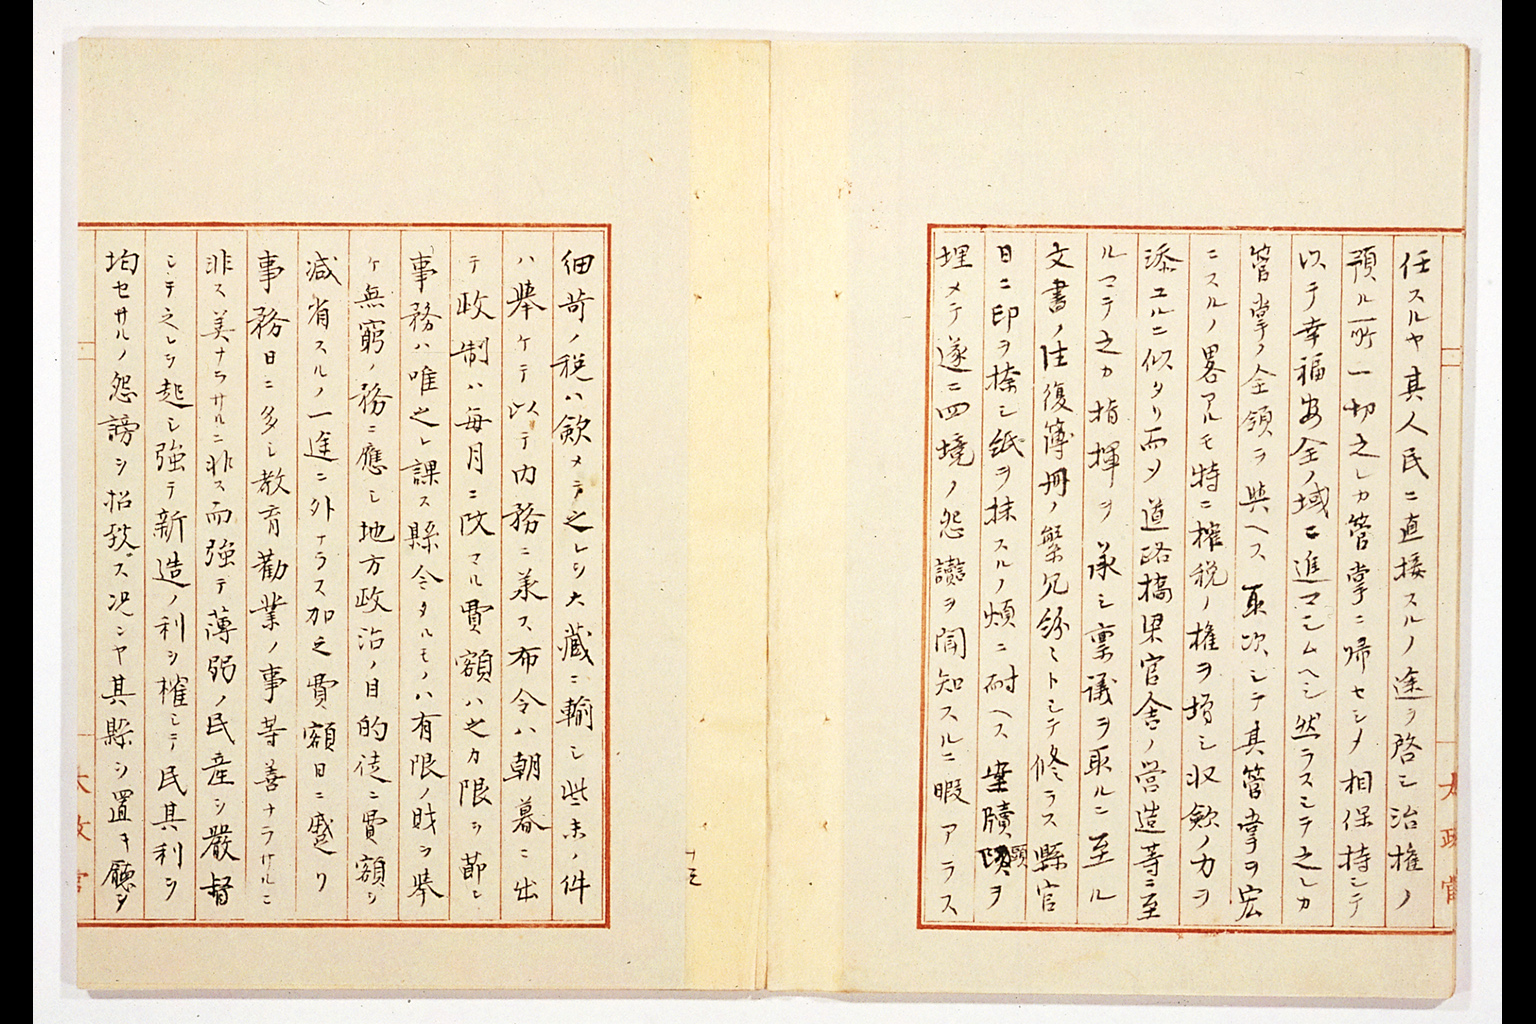 任スルヤ其人民ニ直接スルノ途ヲ啓シ治権ノ
預ル所一切之レカ管掌ニ帰セシメ相保持シテ
以テ幸福安全ノ域ニ進マシムヘシ然ラスシテ之レカ
管掌ノ全領ヲ與ヘス取次シテ其管掌ヲ宏
ニスルノ畧アルモ特ニ権税ノ権ヲ増シ収斂ノ力ヲ
添エルニ似タリ而メ道路橋梁官舎ノ営造等ニ至
ルマテ之カ指揮ヲ承シ稟議ヲ取ルニ至ル
文書ノ往復簿冊ノ繁冗紛ミトシテ修ラス縣官
日ニ印ヲ捺シ紙ヲ抹スルノ煩ニ耐ヘス案牘頭ヲ
埋メテ遂ニ四境ノ怨讟ヲ聞知スルニ暇アラス
細苛ノ税ハ斂メテ之レヲ大藏ニ輸シ些末ノ件
ハ挙ケテ以テ内務ニ禀ス布令ハ朝暮ニ出
テ政制ハ毎月ニ改マル費額ハ之カ限ヲ節シ
事務ハ唯之レ課ス縣令タルモノハ有限ノ財ヲ挙
ケ無窮ノ務ニ應シ地方政治ノ目的徒ニ費額ヲ
減省スルノ一途ニ外ナラス加之費額日ニ蹙リ
事務日ニ多シ教育勧業ノ事等善ナラサルニ
非ス美ナラサルニ非ス而強テ薄弱ノ民産ヲ嚴督
シテ之レヲ起シ強テ新造ノ利ヲ榷シテ民其利ヲ
均セサルノ怨謗ヲ招致ス況ンヤ其縣ヲ置キ廳ヲ
十五
太政官
太政官